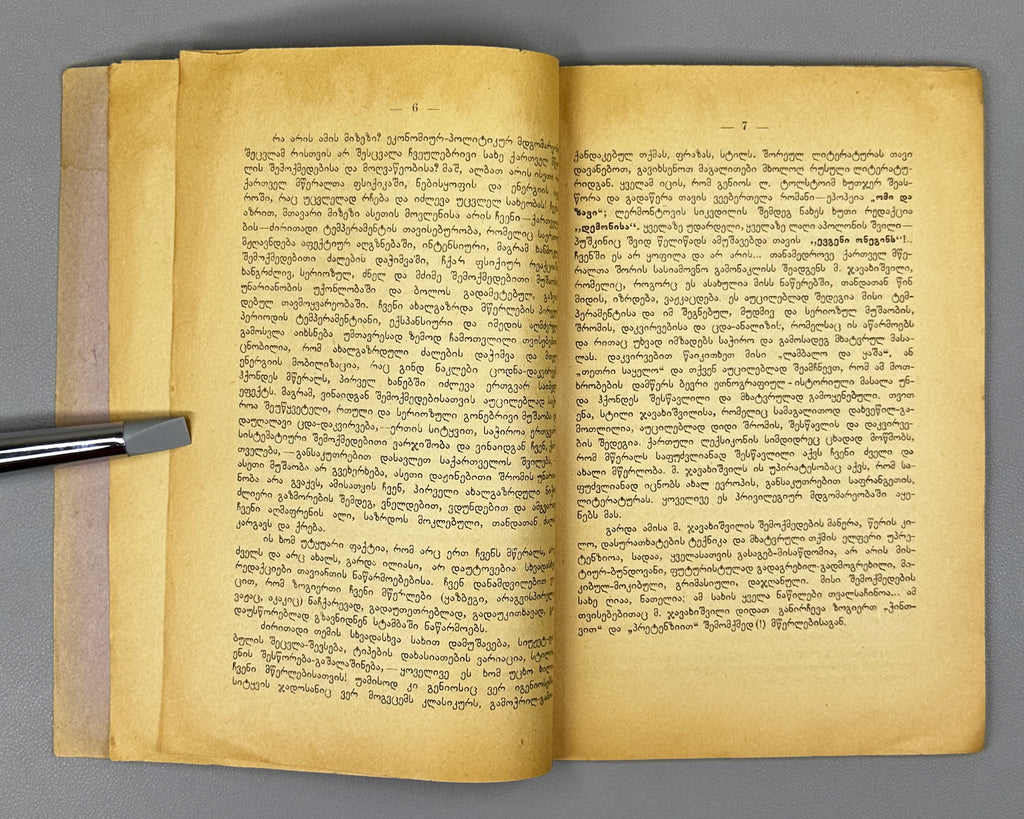 — 6 —
რა არის ამის მიზეზი? ეკონომიურ-პოლიტიკურ
შეცვლამ რისთვის არ შესცვალა ჩვეულებრივი სახე ქართველ
ლის შემოქმედებისა და მოღვაწეობისა? მაშ, ალბათ არის ისეთი
ქართველ მწერალთა ფსიქიკაში, ნებისყოფის და ენერგიის
როში, რაც უცვლელად რჩება და იძლევა უცვლელ სახეობას!
აზრით, მთავარი მიზეზი ასეთის მოვლენისა არის ჩვენი—
ბის—ძირითადი ტემპერამენტის თავისებურობა, რომელიც
მეღავნდება აფექტიურ აღგზნებაში, ინტენსიური, მაგრამ
შემოქმედებითი ძალების დაჭიმვაში, ჩქარ ფსიქიურ
ხანგრძლივ, სერიოზულ, ძნელ და მძიმე შემოქმედებითი
უნარიანობის უქონლობაში და ბოლოს გადამეტებულ,
დებულ თავმოყვარეობაში. ჩვენი ახალგაზრდა მწერლების
პერიოდის ტემპერამენტიანი, ექსპანსიური და იმედის
გამოსვლა აიხსნება უმთავრესად ზემოდ ჩამოთვლილი
ცნობილია, რომ ახალგაზრდული ძალების დაჭიმვა და
ენერგიის მობილიზაცია, რაც გინდ ნაკლები
ჰქონდეს მწერალს, პირველ ხანებში იძლევა ერთგვარ
ეფექტს. მაგრამ, ვინაიდგან შემოქმედებისათვის აუცილებლად
როა შეუწყვეტელი, რთული და სერიოზული გონებრივი მუშაობა
დაუღალავი ცდა-დაკვირვება,—ერთის სიტყვით, საჭიროა
სისტემატიური შემოქმედებითი ვარჯიშობა და ვინაიდგან ჩვენ,
თველებს, — განსაკუთრებით დასავლეთ საქართველოს
ასეთი მუშაობა არ გვეხერხება, ასეთი დაჟინებითი შრომის
ნობა არ გვაქვს, ამისათვის ჩვენ, პირველი ახალგაზრდული
ძლიერი გაზმორების შემდეგ, ვნელდებით, ვდუნდებით და
ჩვენი აღმაფრენის ალი, საზრდოს მოკლებული, თანდათან
კარგავს და ქრება.
ის ხომ უტყუარი ფაქტია, რომ არც ერთ ჩვენს მწერალს,
ძველს და არც ახალს, გარდა ილიასი, არ დაუტოვებია
რედაქციები თავიანთის ნაწარმოებებისა. ჩვენ დანამდვილებით
ცით, რომ ზოგიერთი ჩვენი მწერლები (ყაზბეგი, არაგვისპირელი,
ვაჟაც, აკაკიც) ნაჩქარევად, გადაუთეთრებლად, გადაუკითხავად,
დაუსწორებლად გზავნიდნენ სტამბაში ნაწარმოებს.
ძირითადი თემის სხვადასხვა სახით დამუშავება,
ბულის შეცვლა-შევსება, ტიპების დახასიათების ვარიაცია,
ენის შესწორება-გაშალაშინება, — ყოველივე ეს ხომ უცხო
ჩვენი მწერლებისათვის! უამისოდ კი გენიოსიც ვერ
სიტყვის ჯადოსანიც ვერ მოგვცემს კლასიკურს,
— 7 —
ქანდაკებულ თქმას, ფრაზას, სტილს. შორეულ ლიტერატურას თავი
დავანებოთ, გავიხსენოთ მაგალითები მხოლოდ რუსული ლიტერატუ-
რიდგან. ყველამ იცის, რომ გენიოს ლ. ტოლსტოიმ ხუთჯერ შეას-
წორა და გადაწერა თავის ვეებერთელა რომანი—ეპოპეია „ომი და
ზავი“; ლერმონტოვის სიკვდილის შემდეგ ნახეს ხუთი რედაქცია
„დემონისა“. ყველაზე უდარდელი, ყველაზე ლაღი აპოლონის შვილი—
პუშკინიც შვიდ წელიწადს ამუშავებდა თავის „ევგენი ონეგინს“!..
ჩვენში ეს არ ყოფილა და არ არის... თანამედროვე ქართველ მწე-
რალთა შორის სასიამოვნო გამონაკლისს შეადგენს მ. ჯავახიშვილი,
რომელიც, როგორც ეს ასახულია მისს ნაწერებში, თანდათან წინ
მიდის, იზრდება, ვაჟკაცდება. ეს აუცილებლად შედეგია მისი ტემ-
პერამენტისა და იმ შეგნებულ, მუდმივ და სერიოზულ მუშაობის,
შრომის, დაკვირვებისა და ცდა-ანალიზის, რომელსაც ის აწარმოებს
და რითაც უხვად იმზადებს საჭირო და გამოსადეგ მხატვრულ მასა-
ლას. დაკვირვებით წაიკითხეთ მისი „ლამბალო და ყაშა“, ან
„თეთრი საყელო“ და თქვენ აუცილებლად შეამჩნევთ, რომ ამ მოთ-
ხრობების დამწერს ბევრი ეთნოგრაფიულ-ისტორიული მასალა უნ-
და ჰქონდეს შესწავლილი და მხატვრულად გამოყენებული. თვით
ენა, სტილი ჯავახიშვილისა, რომელიც სამაგალითოდ დახვეწილ-გა-
მოთლილია, აუცილებლად დიდი შრომის, შესწავლის და დაკვირვე-
ბის შედეგია. ქართული ლექსიკონის სიმდიდრეც ცხადად მოწმობს,
რომ მწერალს საფუძვლიანად შესწავლილი აქვს ჩვენი ძველი და
ახალი მწერლობა. მ. ჯავახიშვილს ის უპირატესობაც აქვს, რომ სა-
ფუძვლიანად იცნობს ახალ ევროპის, განსაკუთრებით საფრანგეთის,
ლიტერატურას. ყოველივე ეს პრივილეგიურ მდგომარეობაში აყე-
ნებს მას.
გარდა ამისა მ. ჯავახიშვილის შემოქმედების მანერა, წერის კი-
ლო, დასურათხატების ტექნიკა და მხატვრული თქმის ელფერი უპრე-
ტენზიოა, სადაა, ყველასათვის გასაგებ-მისაწდომია, არ არის მის-
ტიურ-ბუნდოვანი, ფუტურისტულად გადაგრეხილ-გადმოგრეხილი, მა-
კიბულ-მოკიბული, გრიმასიული, დაჯღანული. მისი შემოქმედების
სახე ღიაა, ნათელია; ამ სახის ყველა ნაწილები თვალსაჩინოა... ამ
თვისებებითაც მ. ჯავახიშვილი დიდათ განირჩევა ზოგიერთ „ჭინთ-
ვით“ და „პრეტენზიით“ შემომქმედ (!) მწერლებისაგან.